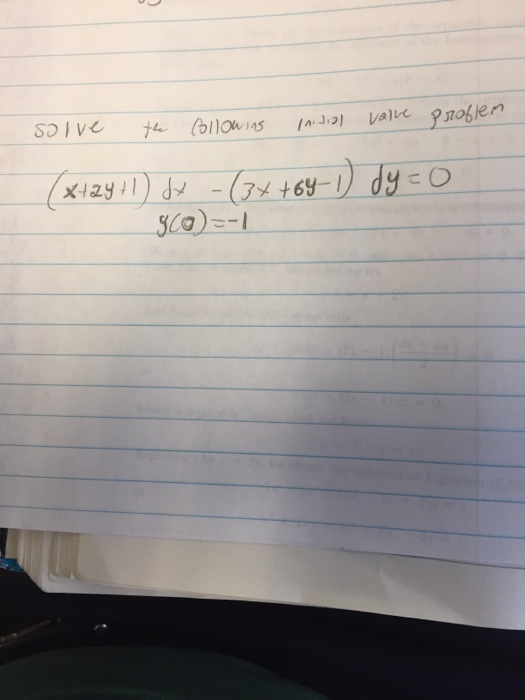 solve the following initial value problem
(x+2y+1) dx - (3x+6y-1) dy = 0
y(0) = -1